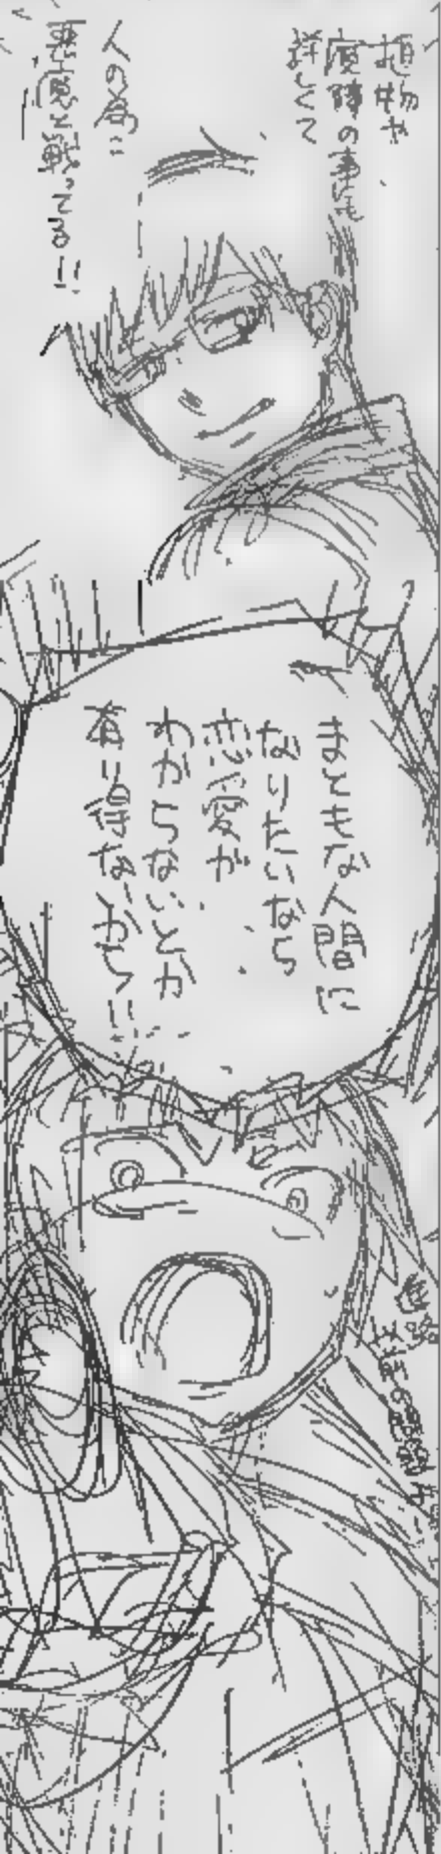 植物や
魔障の事にも
詳しくて
人の為に
悪魔と戦ってる!!
まともな人間に
なりたいなら
恋愛が
わからないとか
有り得ないから!!
進路
以前の